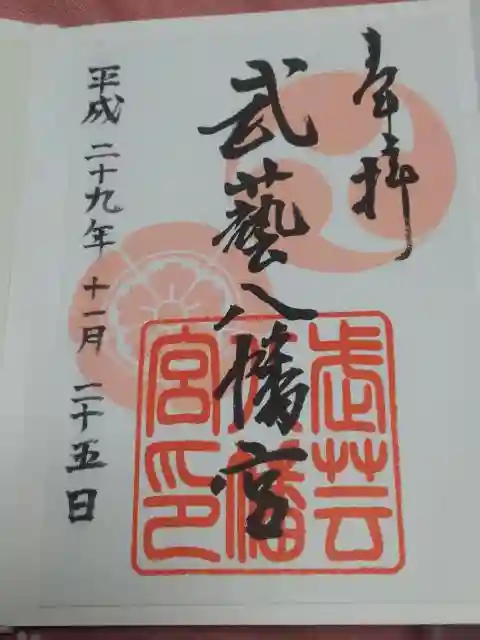 奉拝
武藝八幡宮
武芸
八幡
宮印
平成二十九年十一月二十五日